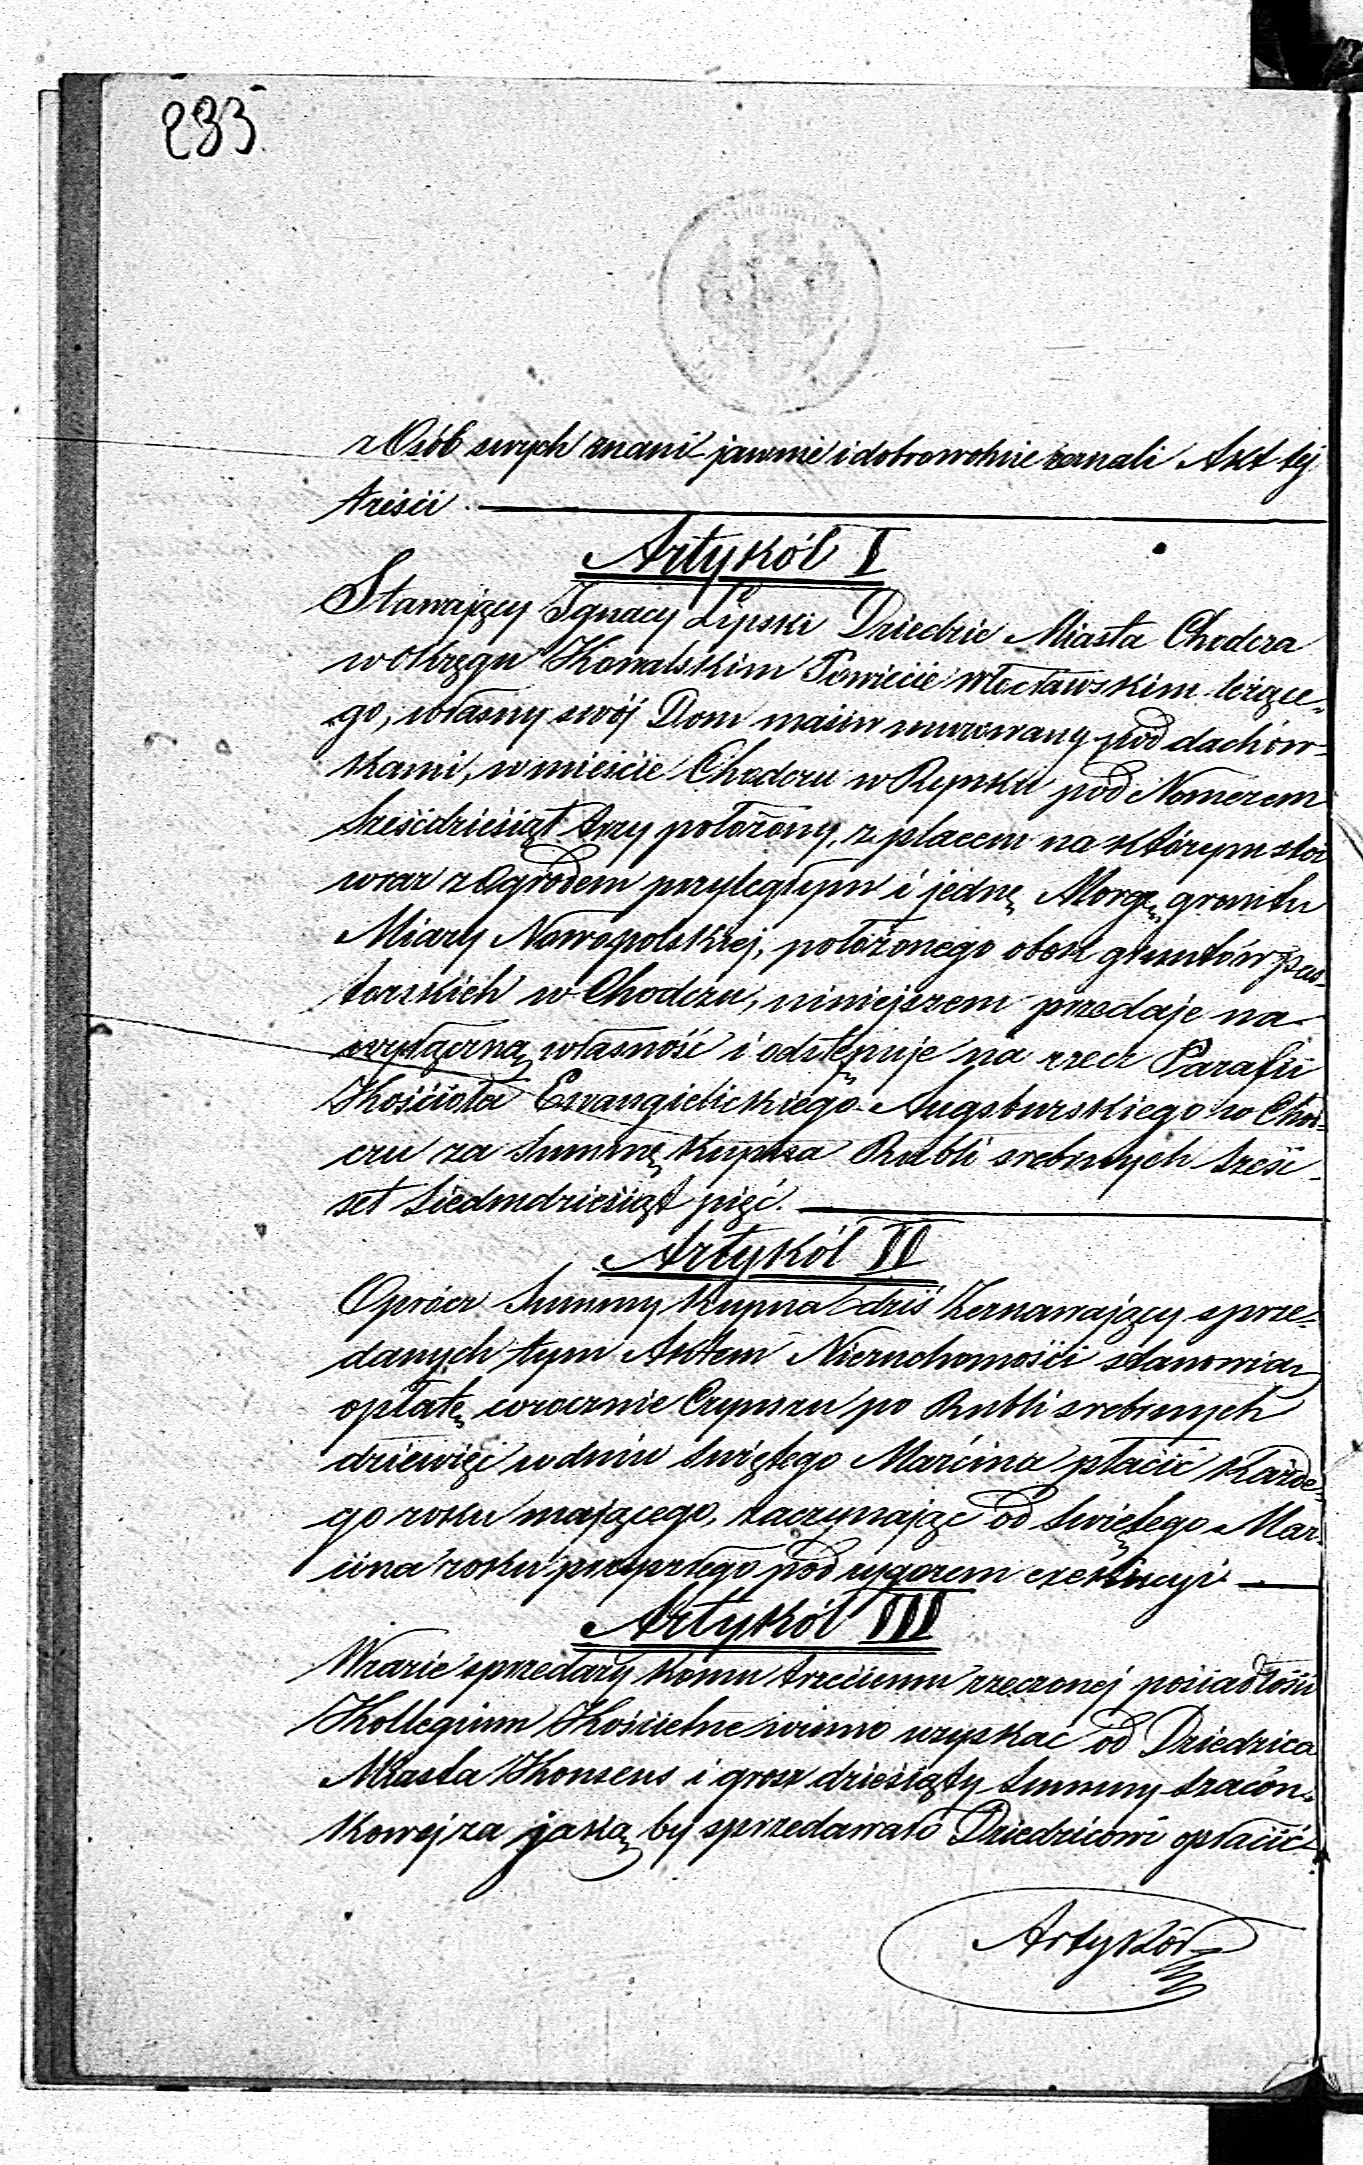 233.
z Osób swych znani jawnie i dobrowolnie zeznali Akt tej
treści.
Artykół I
Stawający Ignacy Lipski Dziedzic Miasta Chodcza
w Okręgu Kowalskim Powiecie Włocławskim leżące-
go, własny swój Dom massiw murowany pod dachów-
kami, w mieście Chodczu w Rynku pod Nomerem
sześćdziesiąt trzy położony, z placem na którym stoi
wraz z Ogrodem przyległym i jedne Morge gruntu
Miary Nowopolskiej, położonego obok gruntów pas-
torskich w Chodczu, niniejszem przedaje na
wyłączną własność i odstępuje na rzecz Parafii
Kościoła Ewangielickiego Augsburskiego w Chod-
czu za Summę Kupna Rubli srebrnych sześć-
set siedmdziesiąt pięć.
Artykół II
Oprócz Summy Kupna dziś Zeznawający sprze-
danych tym Aktem Nieruchomości stanowią
opłatę corocznie Czynszu po Rubli srebrnych
dziewięć w dniu Świętego Marcina płacić każde-
go roku mającego, zaczynając od Świętego Mar-
cina roku przyszłego pod rygorem exekucyi.
Artykół III
W razie sprzedaży komu trzeciemu rzeczonej posiadłości
Kollegium Kościelne winno uzyskać od Dziedzica
Miasta Konsens i grosz dziesiąty Summy szacón-
kowej za jaką by sprzedawało Dziedzicowi opłacić
Artykół